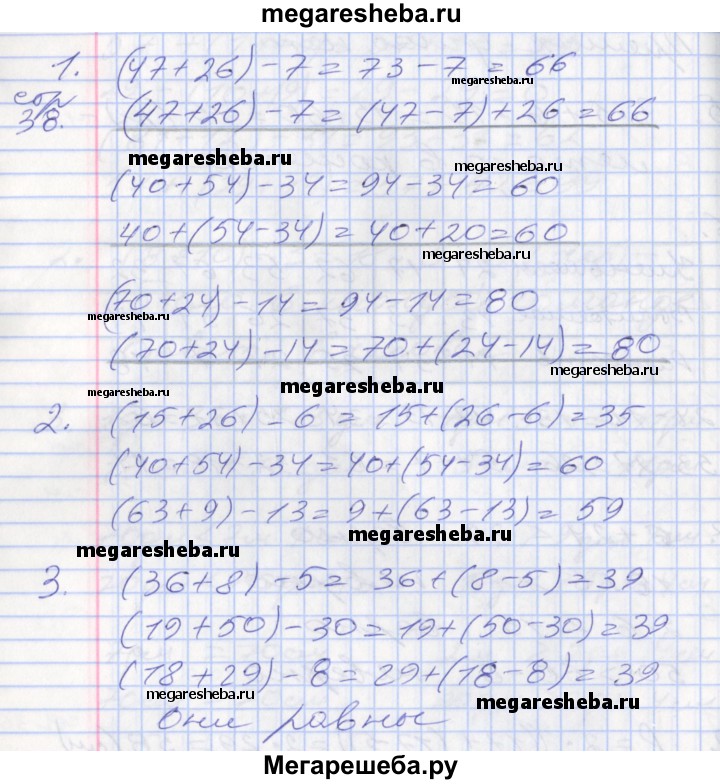 megaresheba.ru
1. (47+26)-7=73-7=66
megaresheba.ru
стр 38. (47+26)-7=(47-7)+26=66
megaresheba.ru
megaresheba.ru
(40+54)-34=94-34=60
40+(54-34)=40+20=60
megaresheba.ru
(70+24)-14=94-14=80
megaresheba.ru
(70+24)-14=70+(24-14)=80
megaresheba.ru
megaresheba.ru
2. (15+26)-6=15+(26-6)=35
(40+54)-34=40+(54-34)=60
(63+9)-13=9+(63-13)=59
megaresheba.ru
megaresheba.ru
3. (36+8)-5=36+(8-5)=39
(19+50)-30=19+(50-30)=39
(18+29)-8=29+(18-8)=39
megaresheba.ru
megaresheba.ru
они равны
Мегарешеба.ру